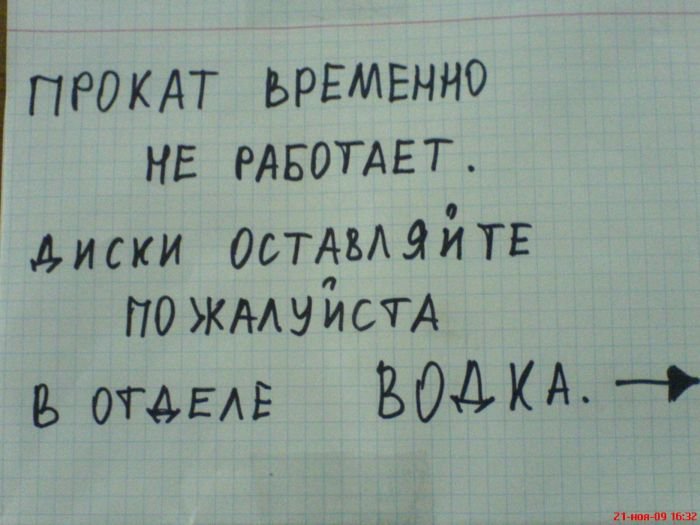 ПРОКАТ ВРЕМЕННО
НЕ РАБОТАЕТ.
ДИСКИ ОСТАВЛЯЙТЕ
ПОЖАЛУЙСТА
В ОТДЕЛЕ ВОДКА. →
21-ноя-09 16:32